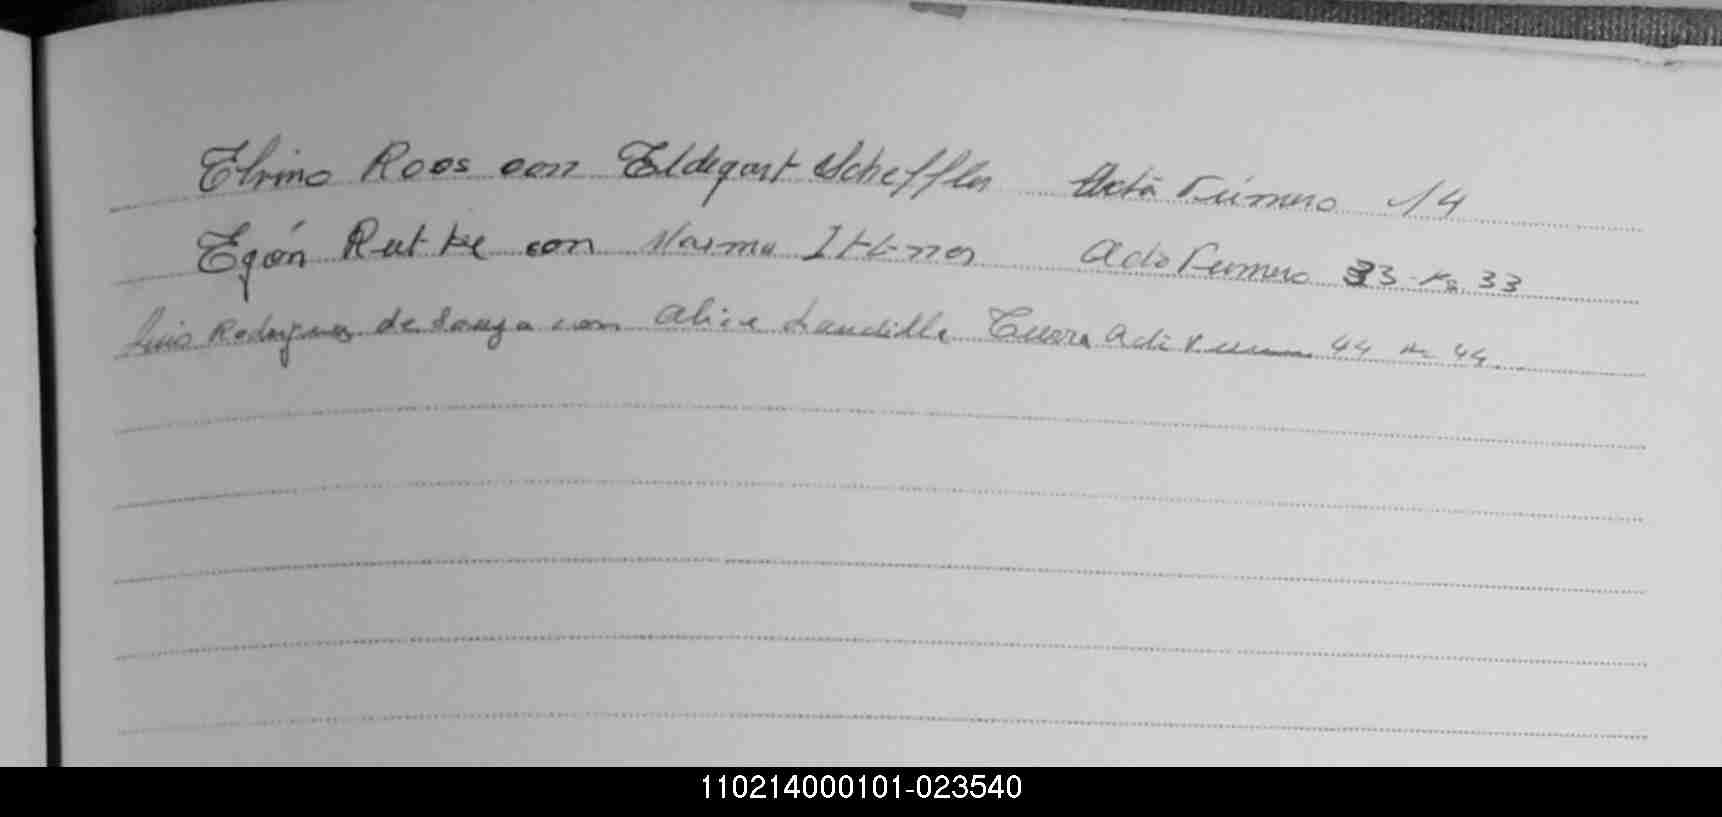 Elvino Roos con Eldegart Scheffler Acta Número 14
Egón Rutke con Norma Ittner Acta Número 33 - Fs 33
Luis Rodriguez de Souza con Alice Guerra Acta 44 44
110214000101-023540